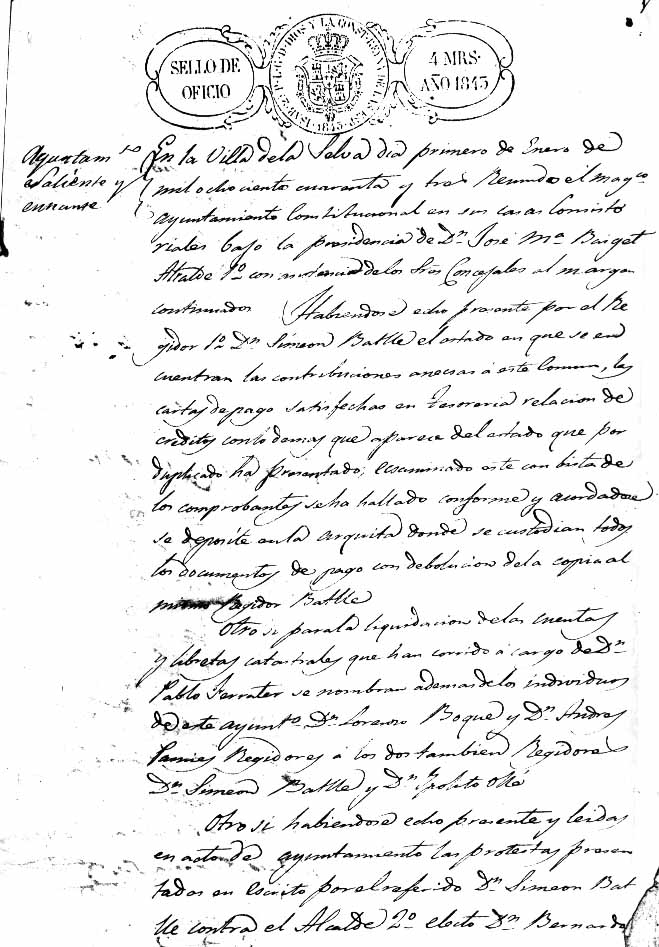 SELLO DE
OFICIO
YSAB. 2ª P. L. G. D. DIOS Y LA CONST. REYNA DE LAS ESP. 1843
4 MRS.
AÑO 1843
Ayuntam.to
saliente y
entrante
En la Villa dela Selva dia primero de Enero de
mil ochociento cuaranta y tres Reunido el mag.co
ayuntamiento Constitucional en sus casas Consisto
riales bajo la presidencia de Dn. José Mª Baiget
Alcalde 1º con asistencia delos Sres Concejales al margen
continuados Habiendose echo presente por el Re
gidor 1º Dn. Simeon Batlle el estado en que se en
cuentran las contribuciones anecsas á este Comun, las
cartas de pago satisfechas en Tesoreria relacion de
creditos con lo demas que aparece del estado que por
duplicado ha presentado; ecsaminado este con bista de
los comprobantes se ha hallado conforme y acordadose
se deposite en la arquita donde se custodian todos
los documentos de pago con debolucion dela copia al
mismo Regidor Batlle
Otro si para la liquidacion delas cuentas
y libretas catastrales que han corrido á cargo de Dn.
Pablo Ferrater se nombran ademas delos individuos
de este ayunt.o Dn. Lorenso Boqué y Dn. Andres
Pamies Regidores á los dos tambien Regidores
Dn. Simeon Batlle y Dn. Ypolito Ollé
Otro si habiendose echo presente y leidas
en acto de ayuntamiento las protestas presen
tadas en escrito por el referido Dn. Simeon Bat
lle contra el Alcalde 2º electo Dn. Bernardo